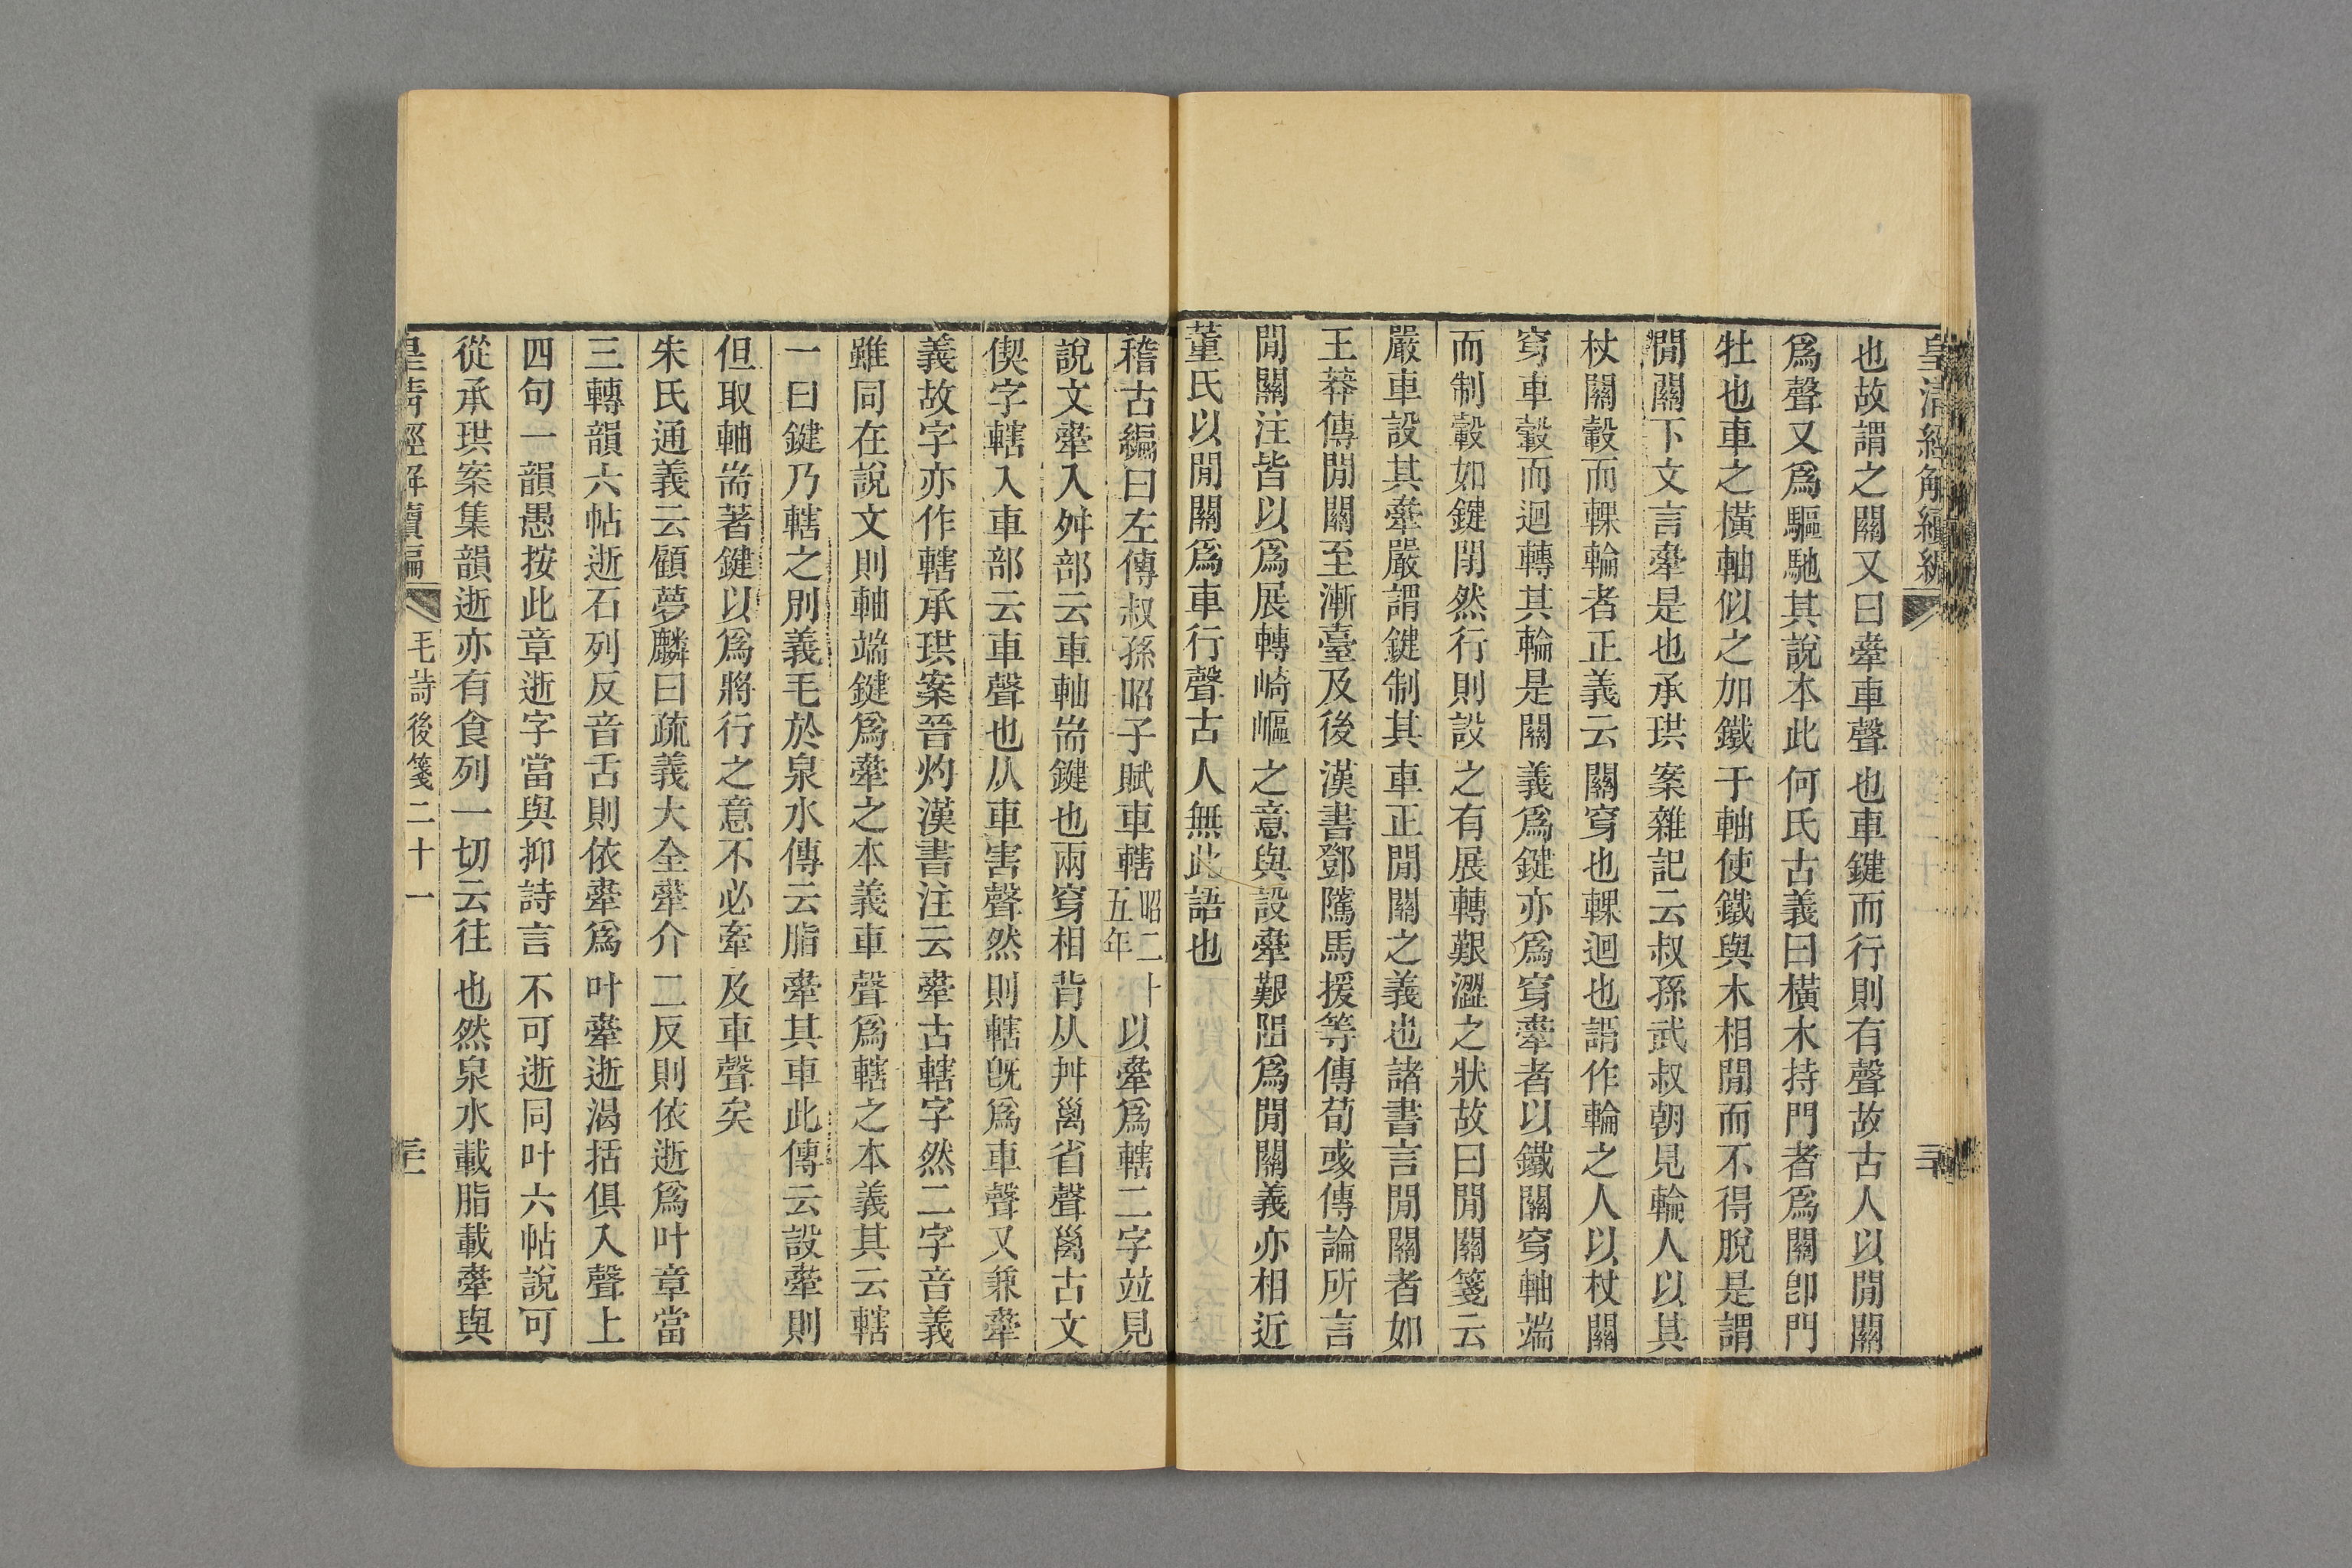 皇清經解續編
也故謂之關又曰舝車聲也車鍵而行則有聲故古人以閒關
爲聲又爲驅馳其說本此何氏古義曰橫木持門者爲關卽門
牡也車之橫軸似之加鐵于軸使鐵與木相閒而不得脫是謂
閒關下文言舝是也承珙案雜記云叔孫武叔朝見輪人以其
杖關轂而輠輪者正義云關穿也輠迴也謂作輪之人以杖關
穿車轂而迴轉其輪是關義爲鍵亦爲穿舝者以鐵關穿軸端
而制轂如鍵閉然行則設之有展轉艱澀之狀故曰閒關箋云
嚴車設其舝嚴謂鍵制其車正閒關之義也諸書言閒關者如
王莽傳閒關至漸臺及後漢書鄧騭馬援等傳荀彧傳論所言
閒關注皆以爲展轉崎嶇之意與設舝艱阻爲閒關義亦相近
董氏以閒關爲車行聲古人無此語也
稽古編曰左傳叔孫昭子賦車轄昭二十五年以舝爲轄二字竝見
說文舝入舛部云車軸耑鍵也兩穿相背从舛𥜿省聲𥜿古文
偰字轄入車部云車聲也从車害聲然則轄旣爲車聲又兼舝
義故字亦作轄承珙案晉灼漢書注云舝古轄字然二字音義
雖同在說文則軸端鍵爲舝之本義車聲爲轄之本義其云轄
一曰鍵乃轄之別義毛於泉水傳云脂舝其車此傳云設舝則
但取軸耑著鍵以爲將行之意不必牽及車聲矣
朱氏通義云顧夢麟曰疏義大全舝介二反則依逝爲叶章當
三轉韻六帖逝石列反音舌則依舝爲叶舝逝渴括俱入聲上
四句一韻愚按此章逝字當與抑詩言不可逝同叶六帖說可
從承珙案集韻逝亦有食列一切云往也然泉水載脂載舝與
皇清經解續編
毛詩後箋二十一